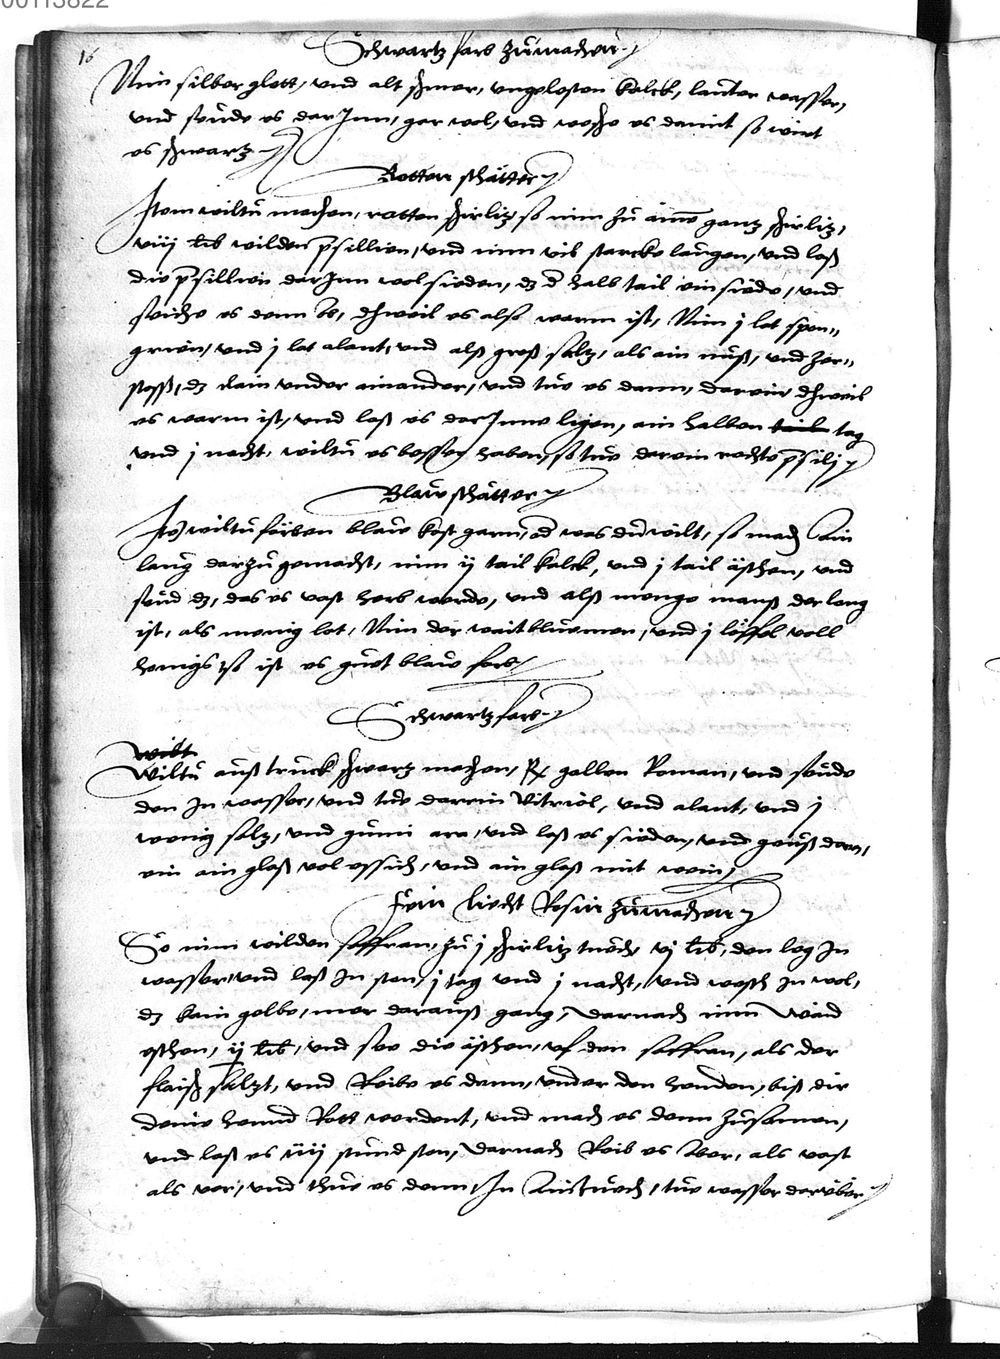 00113822
16
Schwartz farb zůmachen
Nim silber glett, vnd alt schmer, vngelosten kalck, lauter wasser,
vnd seude es dar Jnn, gar wol, vnd wesche es damit so wirt
es schwartz
Rotten schätter
Jtem wiltu machen, rotten schirlitz, so nim zů ainē gantz schirlitz,
viij lib wilden prisillien, vnd nim vil starcke laugen, vnd laß
die prisillien dar Jnn wol sieden, dz d halb tail ein siede, vnd
seiche es denn ab, dhweil es also warm ist, Nim j lot spen=
grien, vnd j lot alant, vnd alß groß saltz, als ain nuß, vnd zer=
stoß, dz klain vnder ainander, vnd tue es dann, darein dhweil
es warm ist, vnd laß es dar Jnne ligen, ain halben tail tag
vnd j nacht, wiltu es besser haben, so tue darein rechte prisilj
Blaw schätter
Jtē wiltu ferben blaw kost garn, od was du wilt, so mach Ain
laug darzů gemacht, nim ij tail kalck, vnd j tail äschen, vnd
seud dz, das es vast herb werde, vnd alß menge mauß der laug
ist, als menig lot, Nim der wait bluemen, vnd j löffel voll
honigs so ist es guet blaw farb
Schwartz farb
Wilt
Wiltu auß truck schwartz machen, Rx gallen Roman, vnd seude
den Jn wasser, vnd tue darein Vitriol, vnd alant, vnd j
wenig saltz, vnd gumi ara, vnd laß es sieden, vnd geuß dar,
ein ain glaß vol essich, vnd ain glaß mit wein
Fein liecht Rosin zůmachen
So nim wilden saffran, zů j schirlitz tuech, vj lib, den leg Jn
wasser vnd laß Jn sten, j tag vnd j nacht, vnd wesch Jn wol,
dz kain gelbe, mer darauß gang, Darnach nim Waid
eschen, ij lib, vnd see die äschen, vf den saffran, als der
flaisch saltzt, vnd Reibe es denn, vnder den henden, biß dir
deine hennd Rott werdent, vnd mach es denn zůsamen,
vnd laß es iiij stund sten, Darnach Reib es Aber, als vast
als vor, vnd thue es denn Jn Ain tuech, tue wasser darüber